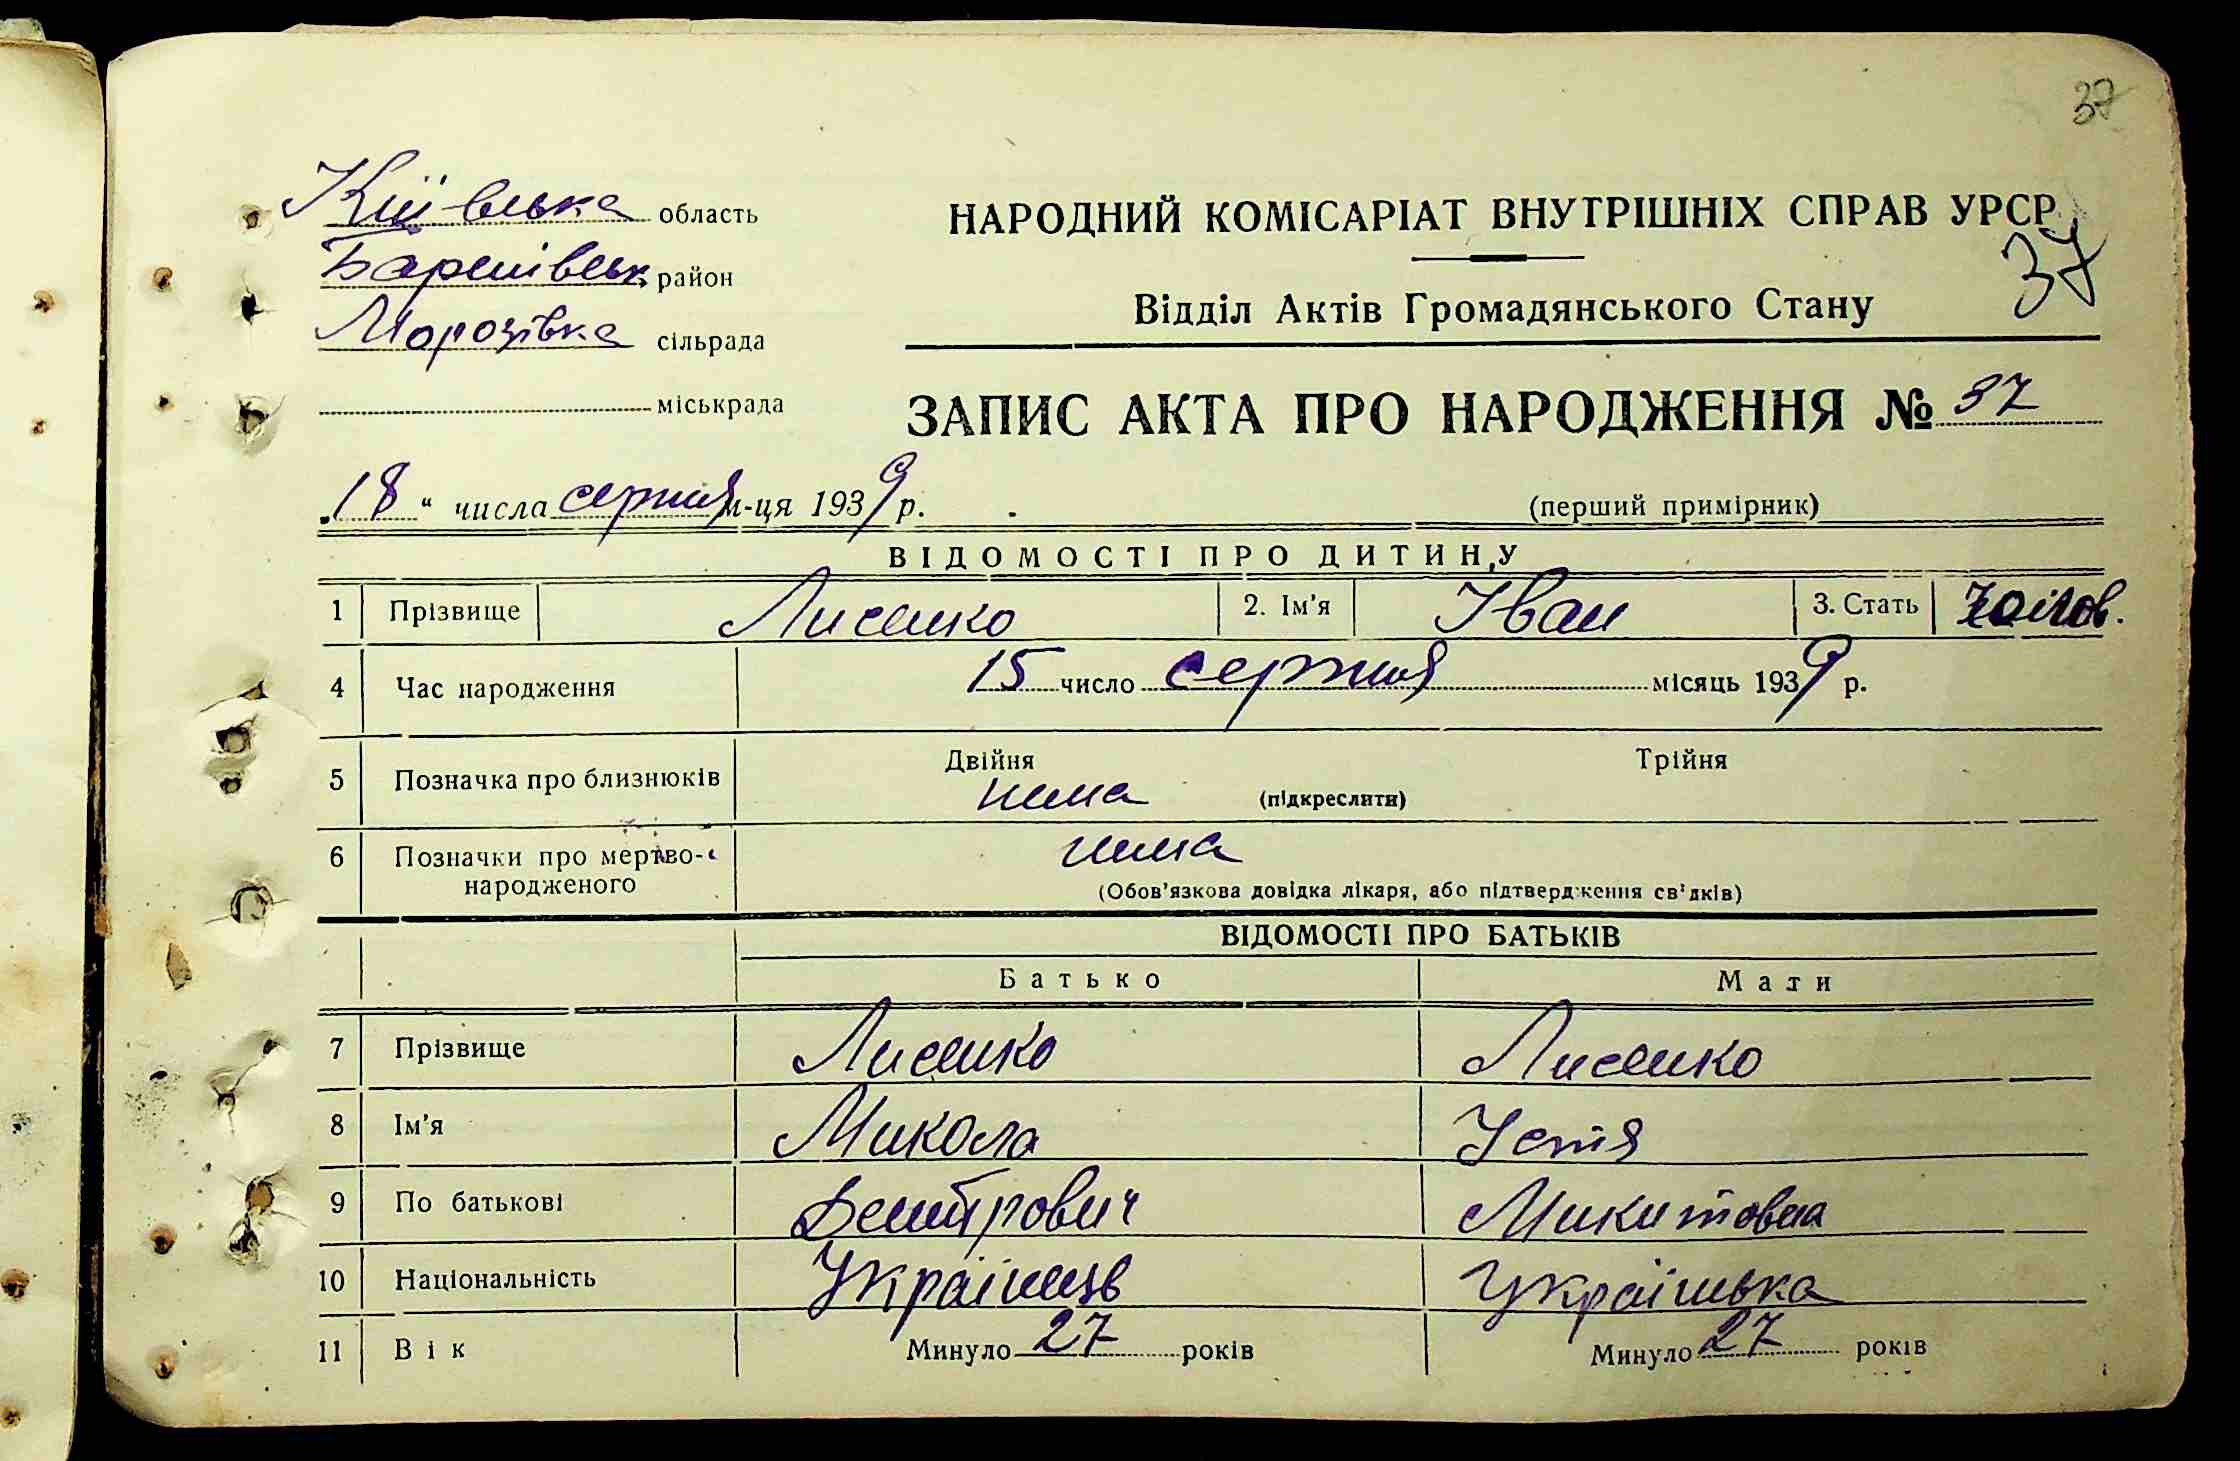 37
Київська область
НАРОДНИЙ КОМІСАРІАТ ВНУТРІШНІХ СПРАВ УРСР
37
Баришівськ район
Відділ Актів Громадянського Стану
Морозівка сільрада
міськрада
ЗАПИС АКТА ПРО НАРОДЖЕННЯ № 37
„18“ числа серпня м-ця 1939 р.
(перший примірник)
ВІДОМОСТІ ПРО ДИТИНУ
1 Прізвище Лисенко 2. Ім'я Іван 3. Стать
4 Час народження 15 число серпня місяць 1939 р.
5 Позначка про близнюків Двійня Трійня
нема (підкреслити)
6 Позначки про мертво- нема
народженого (Обов'язкова довідка лікаря, або підтвердження св'дків)
ВІДОМОСТІ ПРО БАТЬКІВ
Батько Мати
7 Прізвище Лисенко Лисенко
8 Ім'я Микола Устя
9 По батькові Демитрович Микитовна
10 Національність Українець Українька
11 Вік Минуло 27 років Минуло 27 років